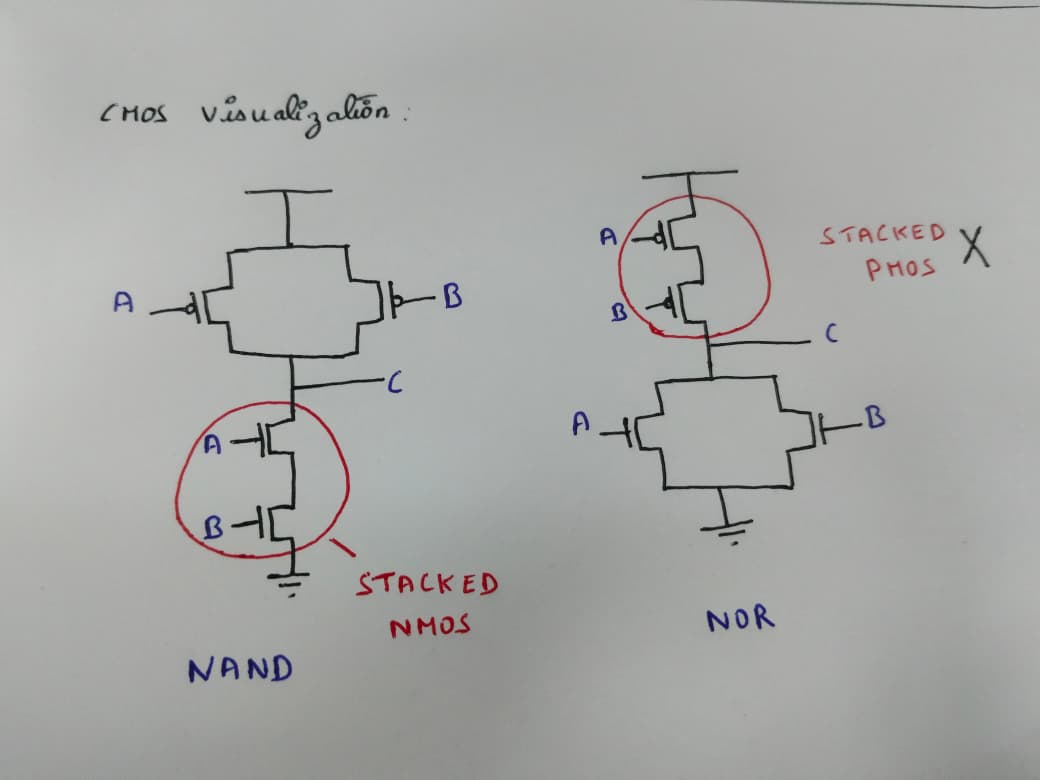 CMOS visualization:
A
B
C
A
B
STACKED
NMOS
NAND
A
B
STACKED X
PMOS
C
A
B
NOR